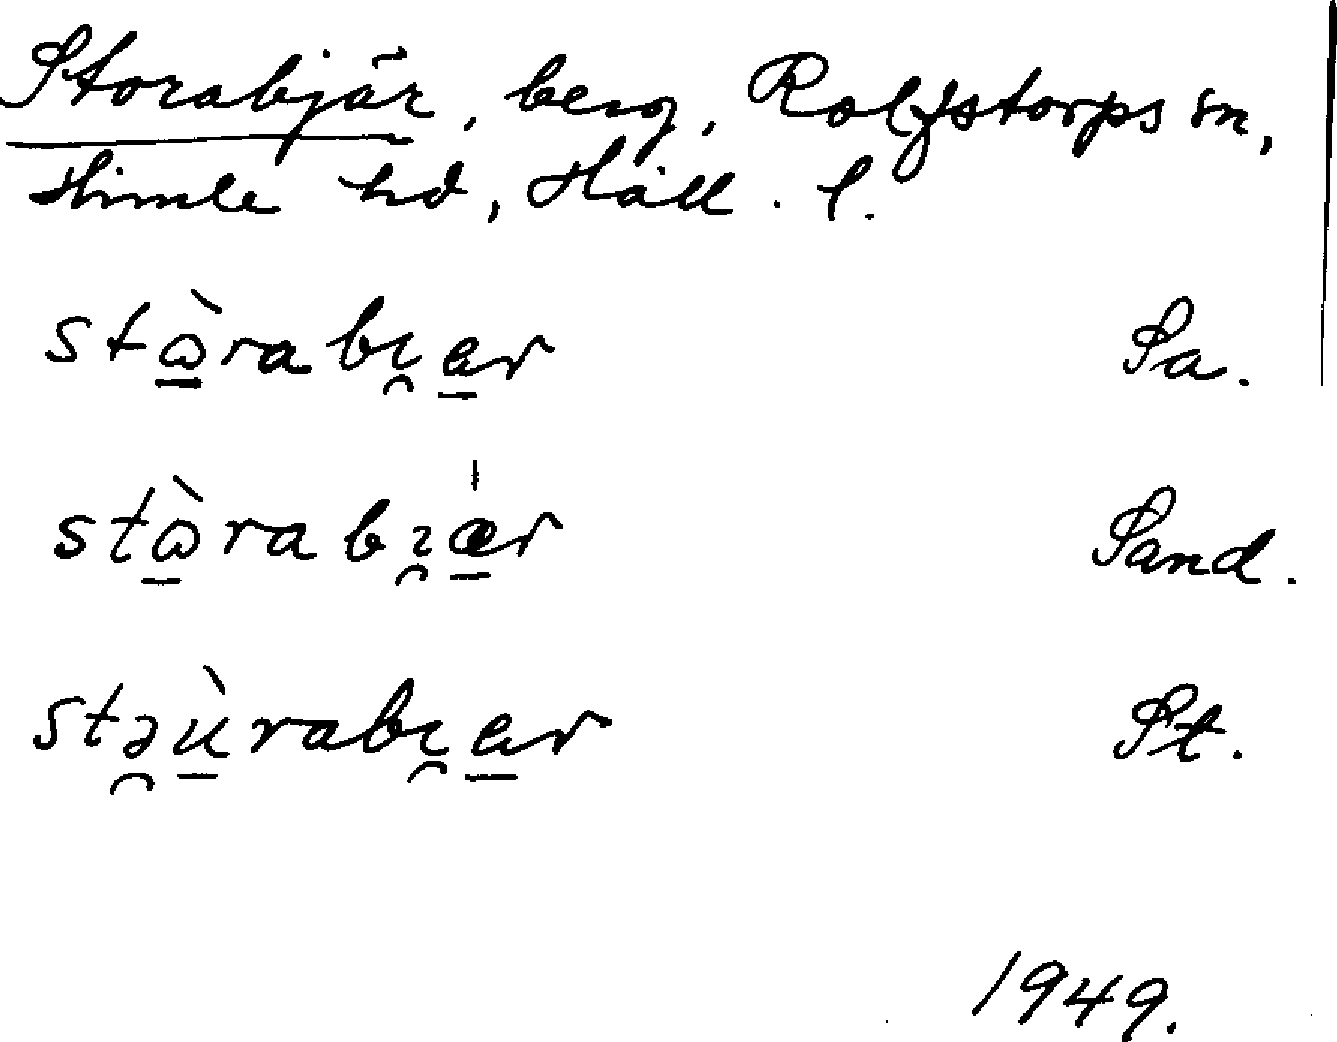 Storabjär, berg, Rolfstorps sn,
Himle hd, Hall. l.
stὼ̲rabı̯a̲r Sa.
stὼ̲rabı̯æ̲̍r Sand.
stə̯ù̲rabı̯a̲r St.
1949.